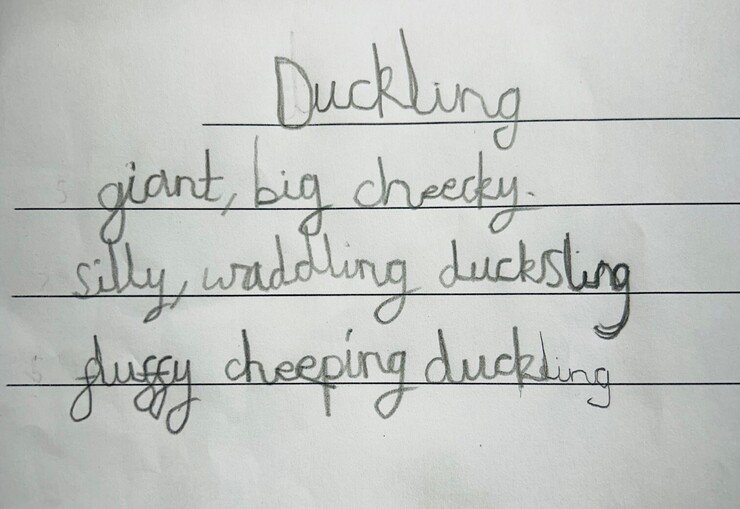 Duckling
giant, big cheecky.
silly, waddling ducksling
fluffy cheeping duckling